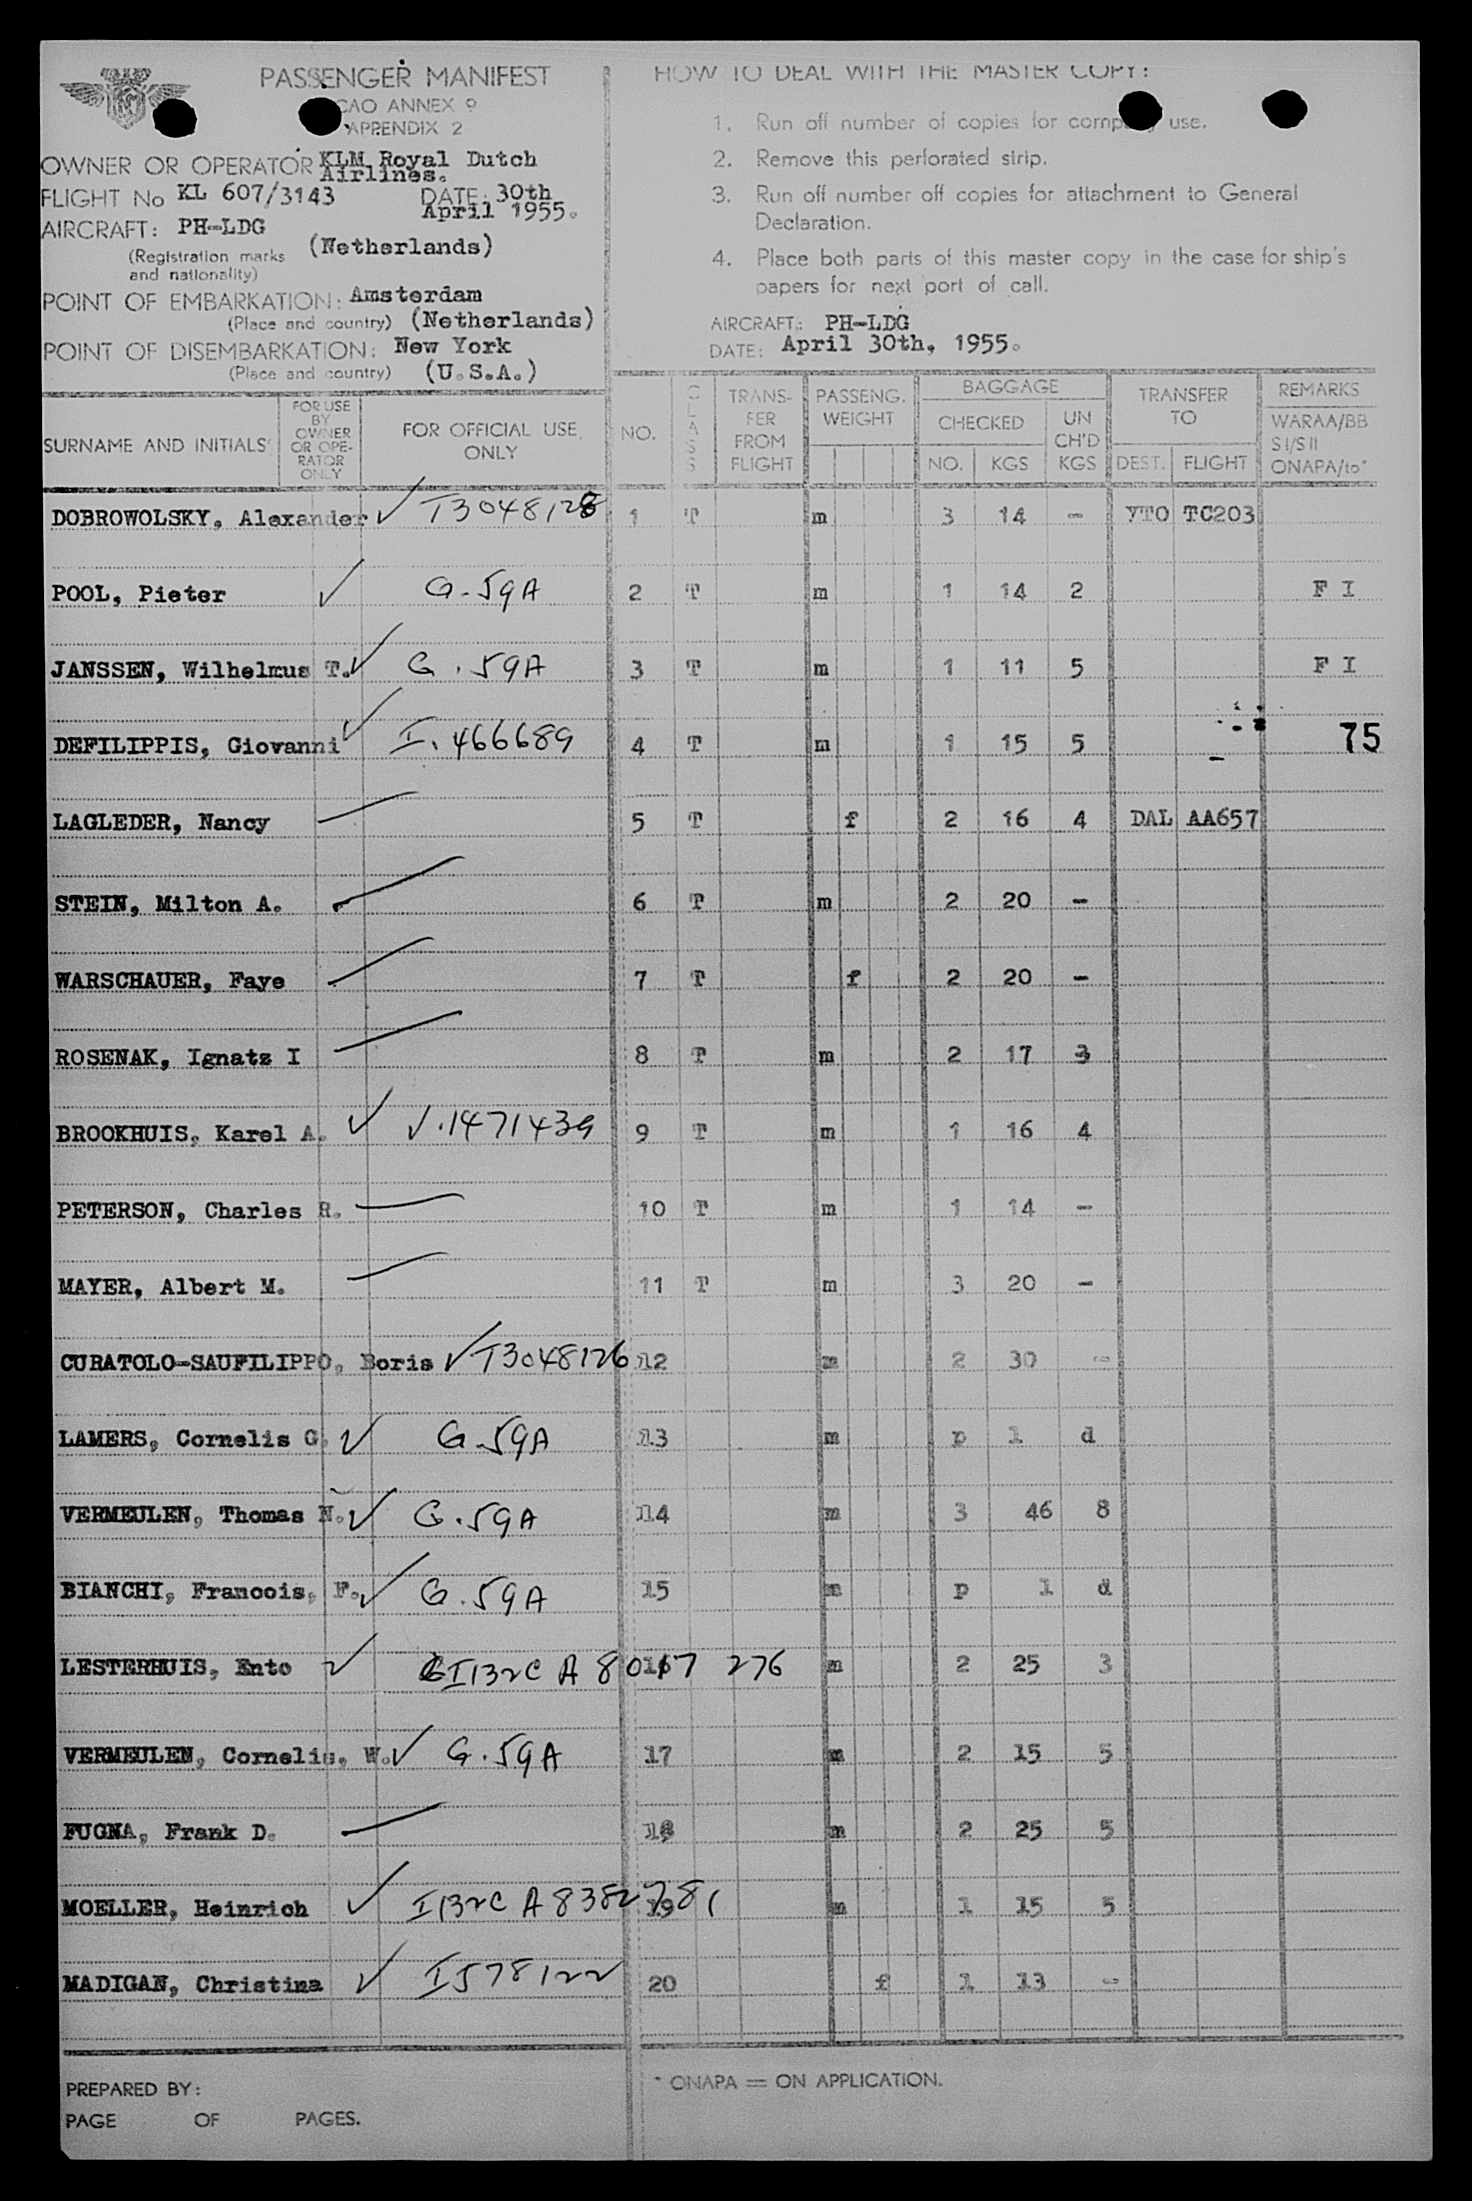 PASSENGER MANIFEST
CAO ANNEX 9
APPENDIX 2
OWNER OR OPERATOR KLM Royal Dutch
Airlines.
FLIGHT No KL 607/3143 DATE: 30th
April 1955.
AIRCRAFT: PH-LDG
(Registration marks (Netherlands)
and nationality)
POINT OF EMBARKATION: Amsterdam
(Place and country) (Netherlands)
POINT OF DISEMBARKATION: New York
(Place and country) (U.S.A.)
HOW TO DEAL WITH THE MASTER COPY:
1. Run off number of copies for company use.
2. Remove this perforated strip.
3. Run off number off copies for attachment to General
Declaration.
4. Place both parts of this master copy in the case for ship's
papers for next port of call.
AIRCRAFT: PH-LDG
DATE: April 30th, 1955.
SURNAME AND INITIALS FOR USE BY OWNER OR OPE-RATOR ONLY FOR OFFICIAL USE ONLY NO. CLASS TRANS-FER FROM FLIGHT PASSENG. WEIGHT BAGGAGE CHECKED NO. KGS UN CH'D KGS TRANSFER TO DEST. FLIGHT REMARKS WARAA/BB SI/SII ONAPA/to*
DOBROWOLSKY, Alexander ✓ T3048128 1 T m 3 14 - YTO TC203
POOL, Pieter ✓ G-59A 2 T m 1 14 2 F I
JANSSEN, Wilhelmus T. ✓ G.59A 3 T m 1 11 5 F I
DEFILIPPIS, Giovanni ✓ I.466689 4 T m 1 15 5 75
LAGLEDER, Nancy 5 T f 2 16 4 DAL AA657
STEIN, Milton A. 6 T m 2 20 -
WARSCHAUER, Faye 7 T f 2 20 -
ROSENAK, Ignatz I 8 T m 2 17 3
BROOKHUIS, Karel A. ✓ V.1471439 9 T m 1 16 4
PETERSON, Charles R. 10 T m 1 14 -
MAYER, Albert M. 11 T m 3 20 -
CURATOLO-SAUFILIPPO, Boris ✓ T3048126 12 m 2 30 -
LAMERS, Cornelis G. ✓ G.59A 13 m p 1 d
VERMEULEN, Thomas N. ✓ G.59A 14 m 3 46 8
BIANCHI, Francois, F. ✓ G.59A 15 m p 1 d
LESTERHUIS, Ento ✓ I132C A 8017 276 16 m 2 25 3
VERMEULEN, Cornelis, W. ✓ G.59A 17 m 2 15 5
FUGNA, Frank D. 18 m 2 25 5
MOELLER, Heinrich ✓ I132C A 8382781 19 m 1 15 5
MADIGAN, Christina ✓ I578122 20 f 1 13 -
PREPARED BY:
PAGE OF PAGES.
* ONAPA = ON APPLICATION.